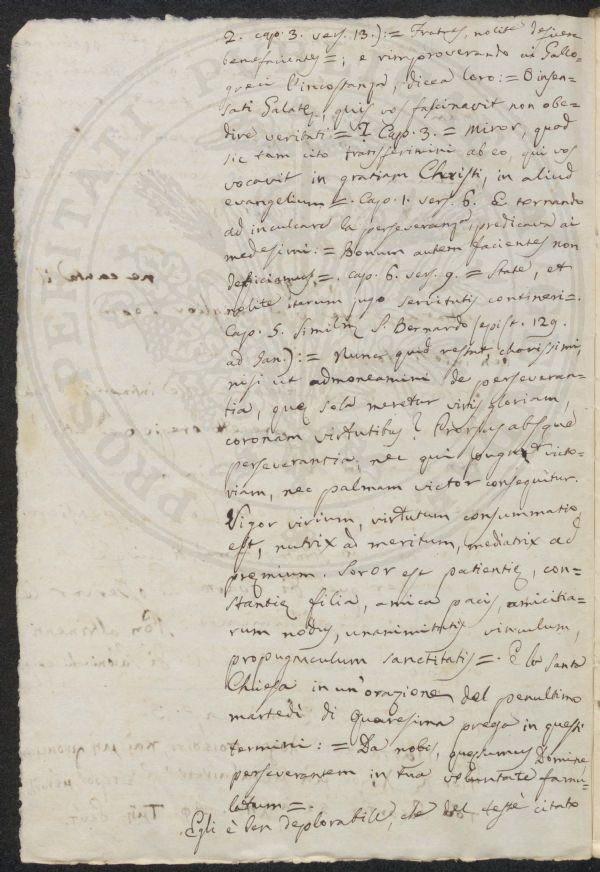 2. cap. 3. vers. 13.): = Fratres, nolite deficere
benefacientes =; e rimproverando ai Gallo-
greci l'incostanza, dicea loro: = O insen-
sati Galatę, quis vos fascinavit non obe-
dire veritati = I Cap. 3. = Miror, quod
sic tam cito transferimini ab eo, qui vos
vocavit in gratiam Christi, in aliud
evangelium = Cap. 1. vers. 6. E tornando
ad inculcare la perseveranza, predicava ai
medesimi: = Bonum autem facientes non
deficiamus =. Cap. 6. vers. 9. = State, et
nolite iterum jugo servitutis contineri =.
Cap. 5. Similm S. Bernardo (epist. 129.
ad Jan.): = Nunc quid restat, charissimi,
nisi ut admoneamini de perseveran-
tia, quę sola meretur viris gloriam,
coronam virtutibus? Prorsus absque
perseverantia, nec qui pugnat victo-
riam, nec palmam victor consequitur.
Vigor virium, virtutum consummatio
est, nutrix ad meritum, mediatrix ad
pręmium. Soror est patientię, con-
stantię filia, amica pacis, amicitia-
rum nodus, unanimitatis vinculum,
propugnaculum sanctitatis =. E la Santa
Chiesa in un'orazione del penultimo
martedì di Quaresima prega in questi
termini: = Da nobis, quęsumus Domine
perseverantem in tua voluntate famu-
latum =.
Egli è ben deplorabile, che del testè citato
PROSPERITATI PUBLICAE